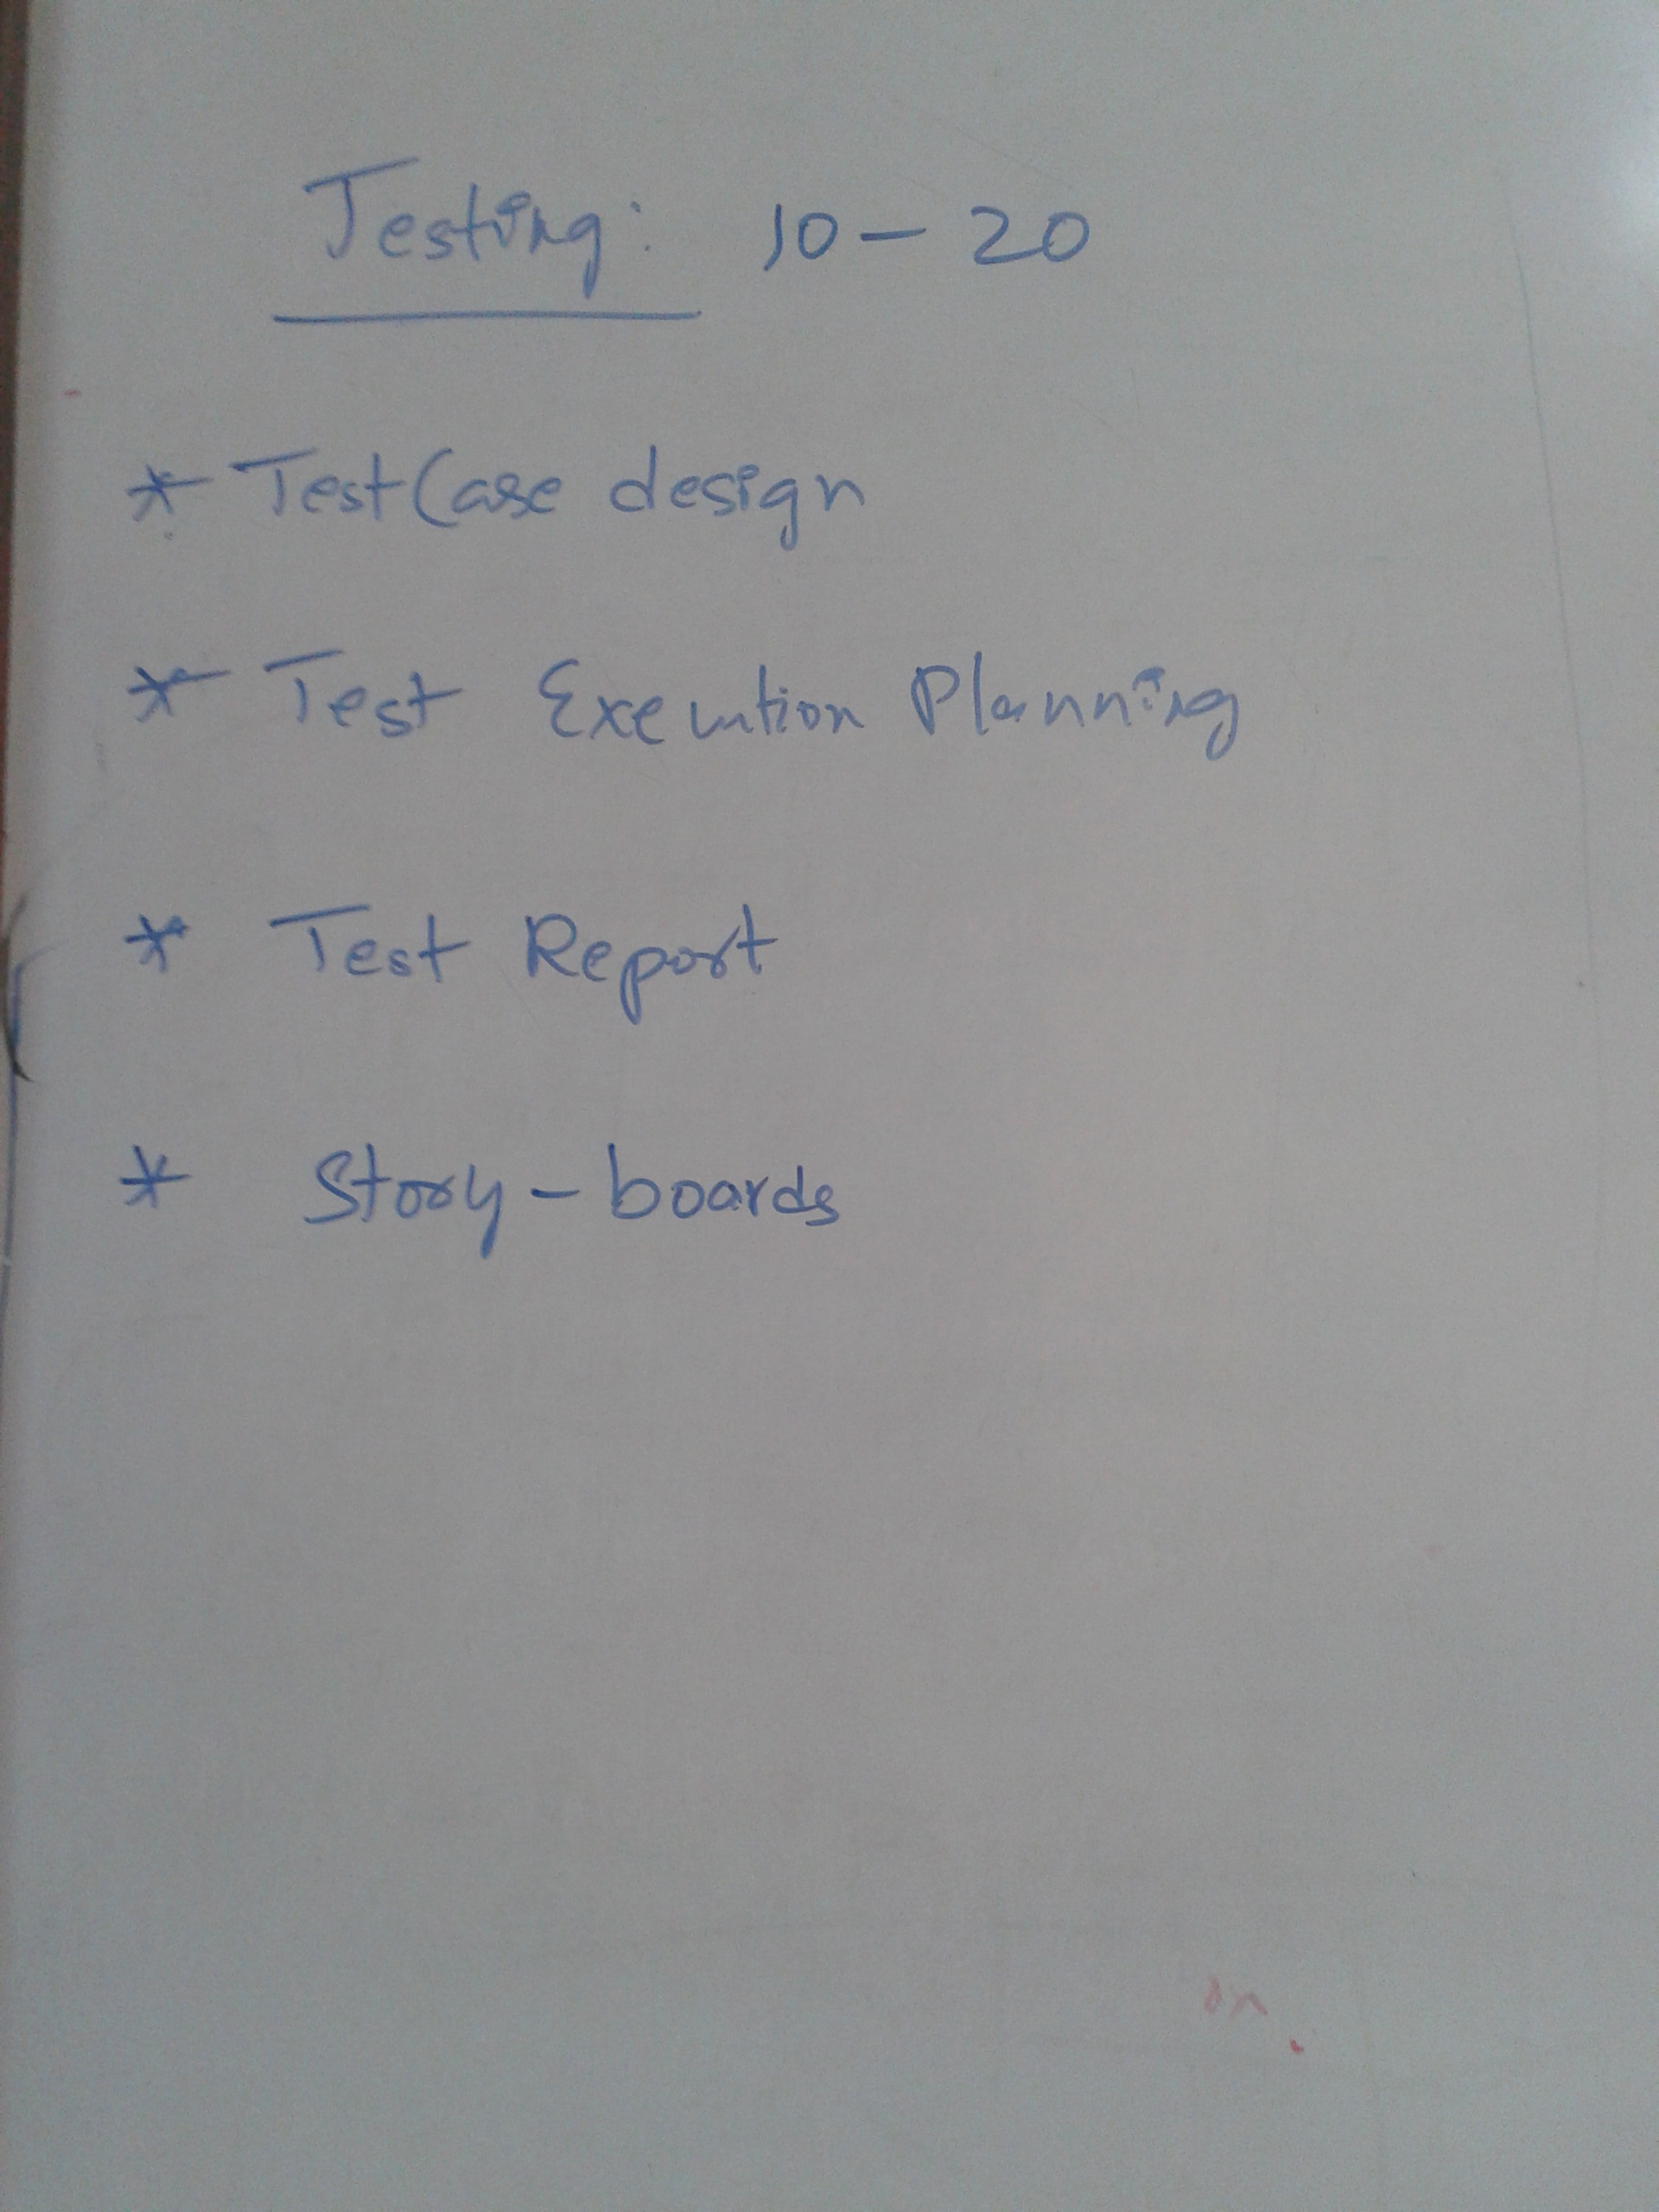 Testing: 10 - 20
* TestCase design
* Test Execution Planning
* Test Report
* Story - boards